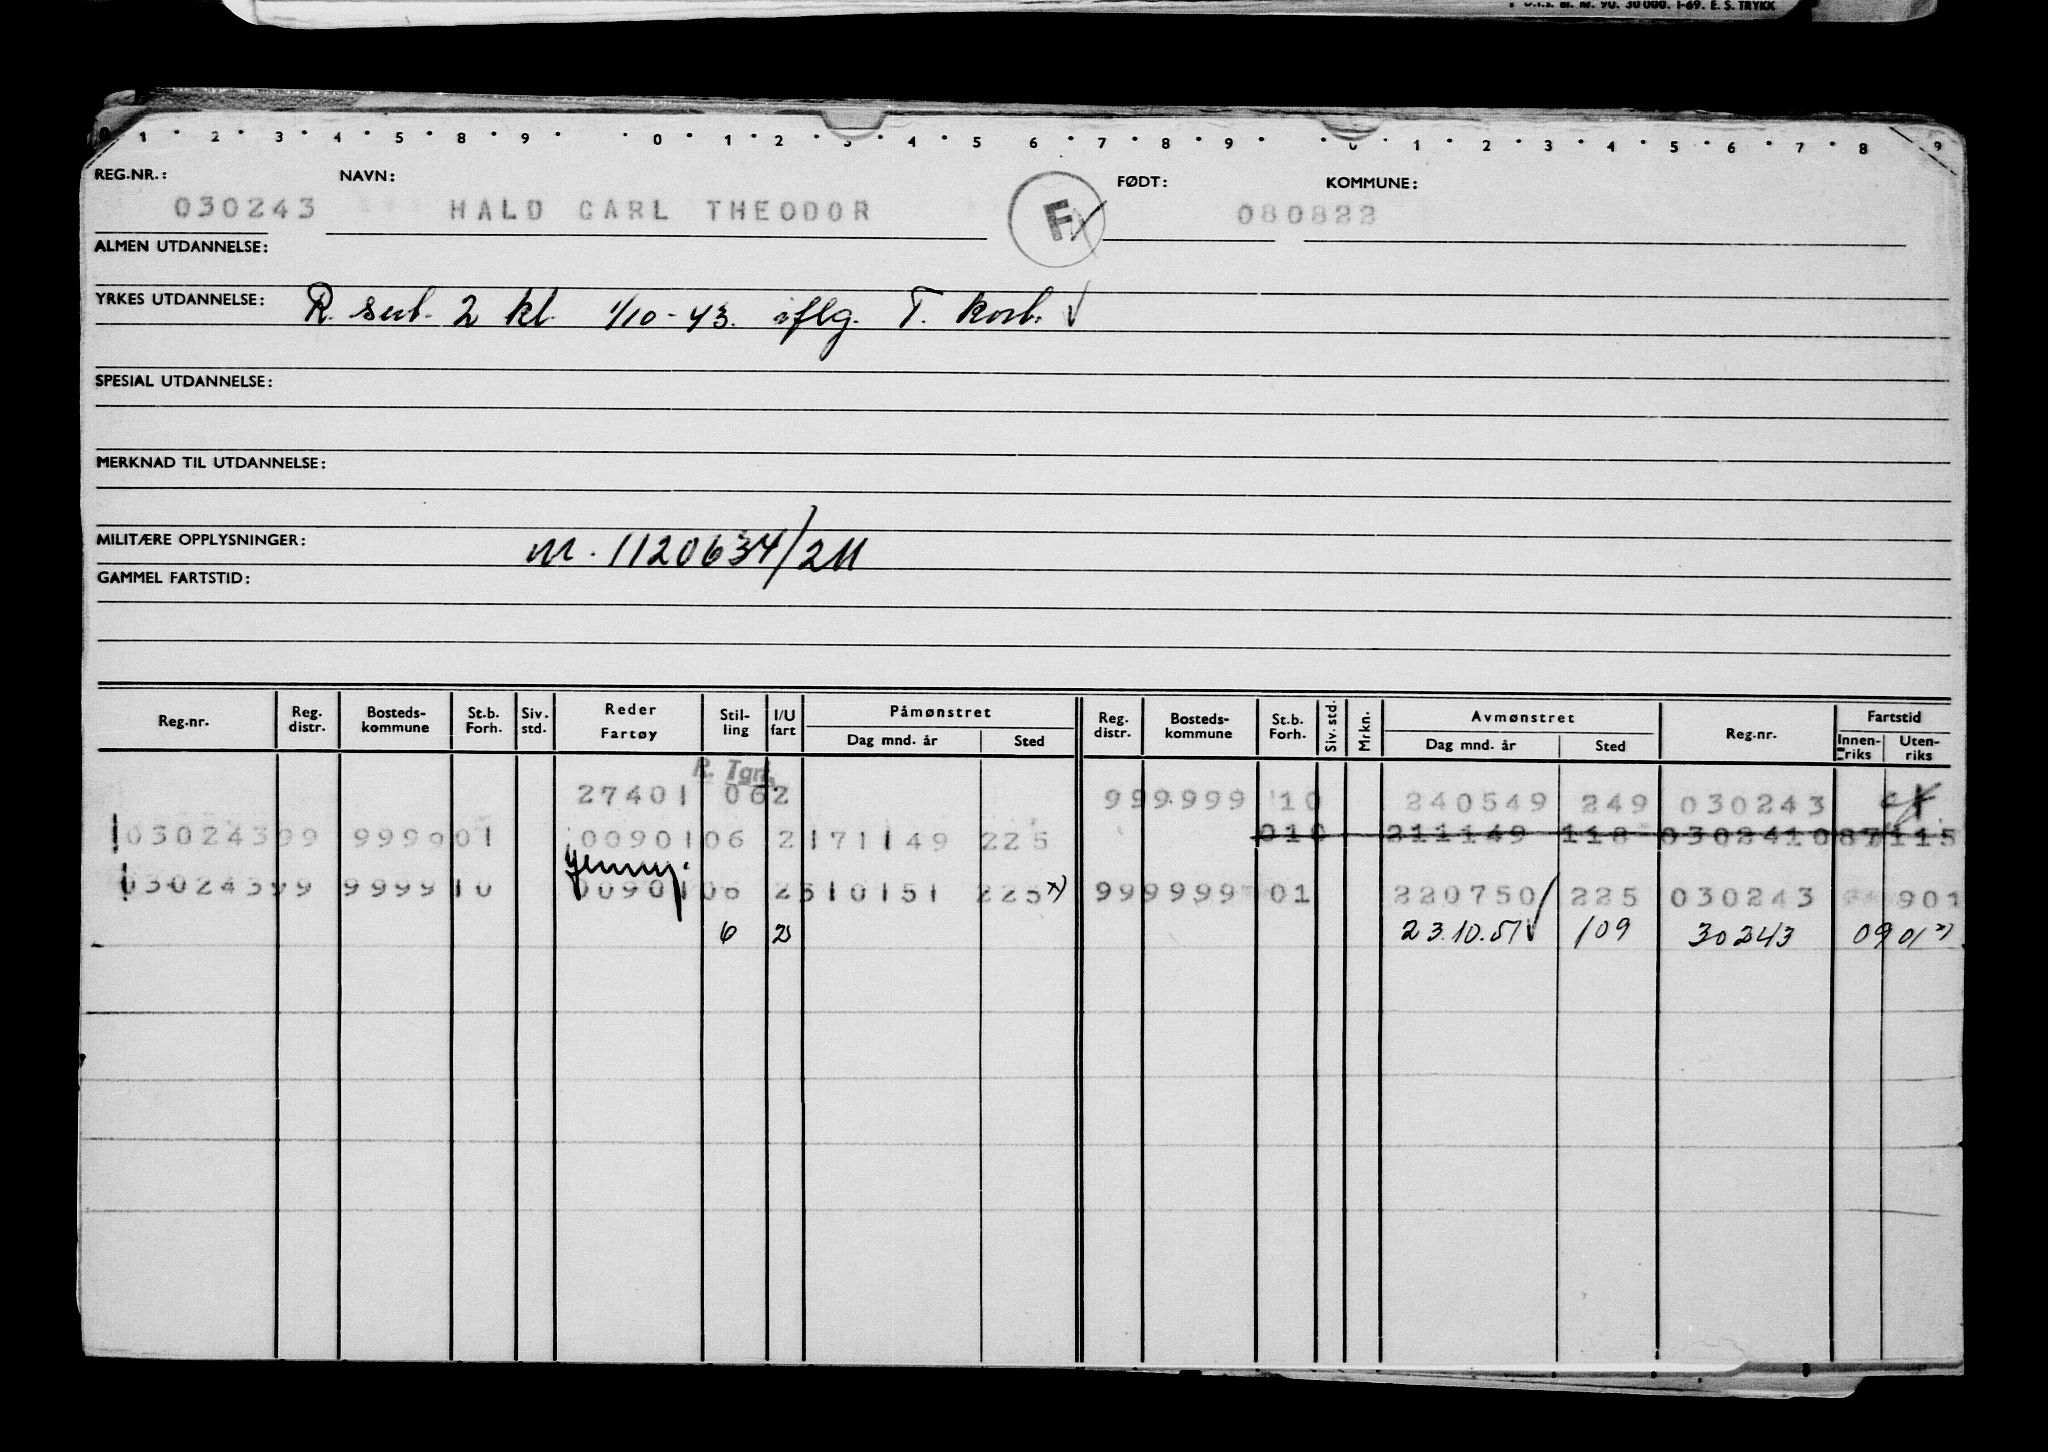 BL. NR. 90. 30000. 1-69. E. S. TRYKK
0 1 2 3 4 5 8 9 0 1 2 3 4 5 6 7 8 9 0 1 2 3 4 5 6 7 8 9
REG.NR.: NAVN: FØDT: KOMMUNE:
030243 HALD CARL THEODOR F 080822
ALMEN UTDANNELSE:
YRKES UTDANNELSE: R. sert. 2 kl. 1/10-43. iflg. T. kort.
SPESIAL UTDANNELSE:
MERKNAD TIL UTDANNELSE:
MILITÆRE OPPLYSNINGER: M. 1120634/2M
GAMMEL FARTSTID:
Reg.nr. Reg. distr. Bosteds- kommune St.b. Forh. Siv. std. Reder Fartøy Stil- ling I/U fart Påmønstret Dag mnd. år Sted Reg. distr. Bosteds- kommune St.b. Forh. Siv. std. Mrkn. Avmønstret Dag mnd. år Sted Reg.nr. Fartstid Innen- riks Uten- riks
R. Tgrf.
27401 062 999999 10 240549 249 030243
03024399 999901 0090106 2171149 225 010 211149 118 0302410 87115
Jenny.
03024399 999910 0090106 2310151 225 x) 999999 01 220750 225 030243 901
6 2 23.10.51 109 30243 0901 x)